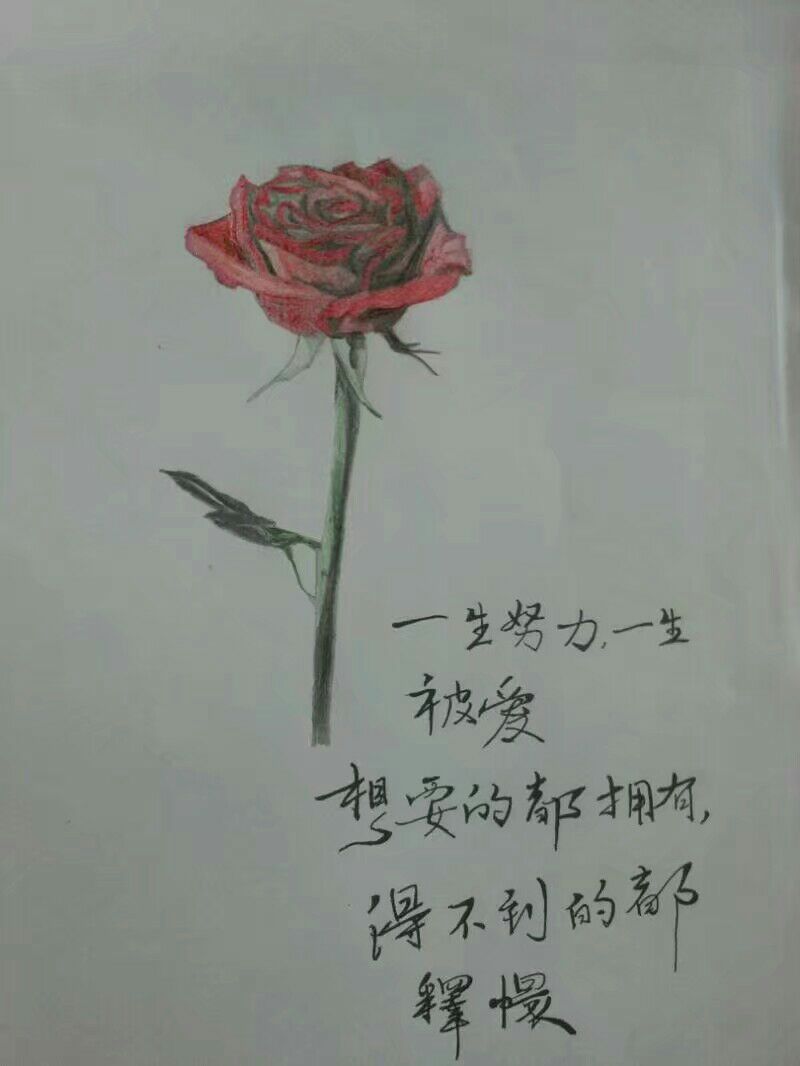 一生努力,一生
被愛
想要的都拥有,
得不到的都
釋懷